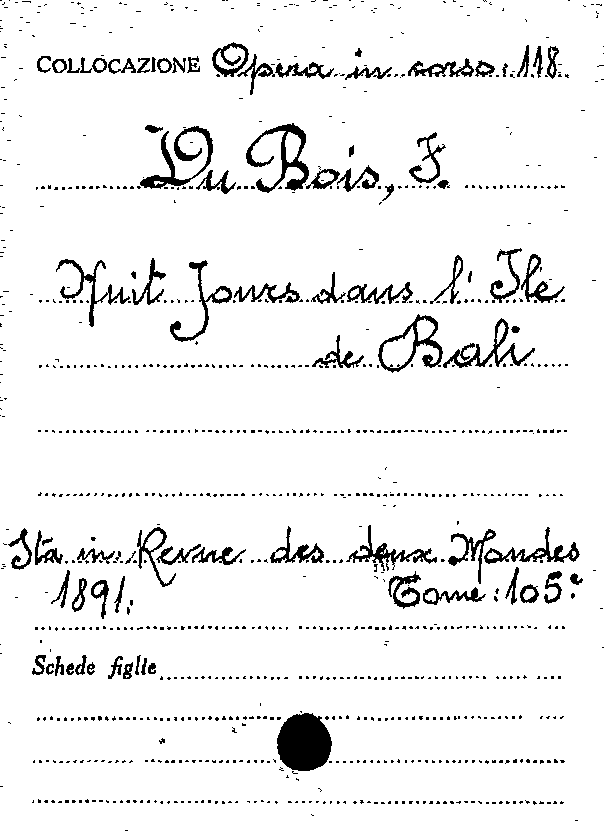 COLLOCAZIONE Opera in corso: 118.
Du Bois, F.
Huit Jours dans l' Ile
de Bali
Sta in: Revue des deux Mondes
1891. Tome: 105.º
Schede figlie